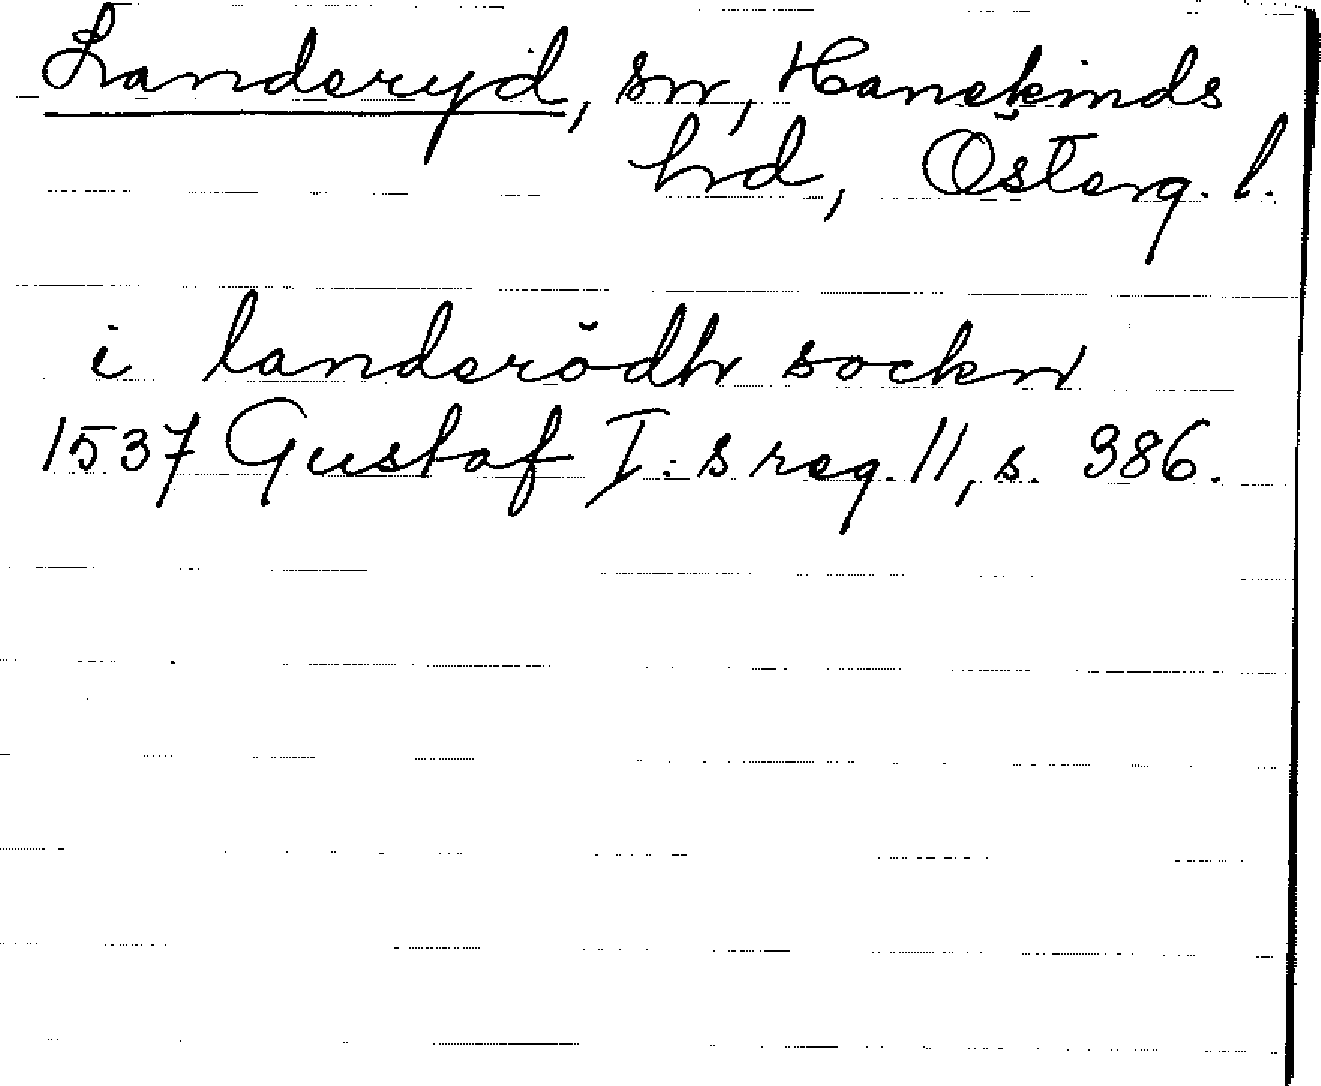 Landeryd, sn, Hanekinds
hrd, Österg. l.
i landerödh sockn
1537 Gustaf I:s reg. 11, s. 386.